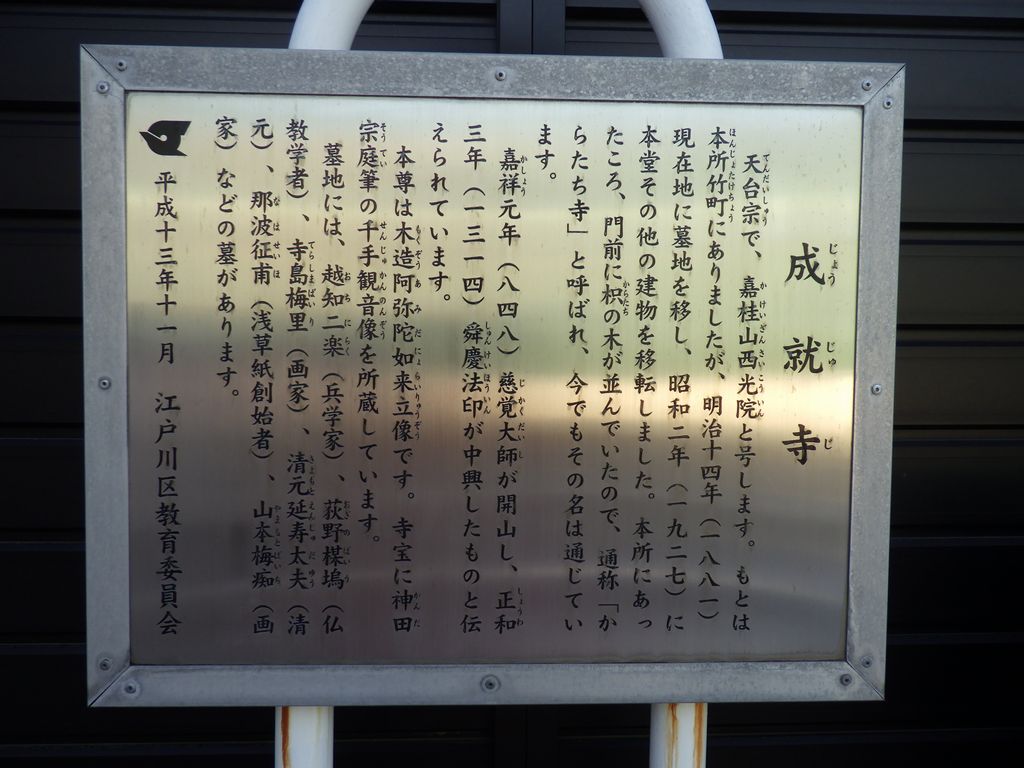 成就寺
天台宗で、嘉桂山西光院と号します。もとは
本所竹町にありましたが、明治十四年（一八八一）
現在地に墓地を移し、昭和二年（一九二七）に
本堂その他の建物を移転しました。本所にあっ
たころ、門前に枳の木が並んでいたので、通称「か
らたち寺」と呼ばれ、今でもその名は通じてい
ます。
嘉祥元年（八四八）慈覚大師が開山し、正和
三年（一三一四）舜慶法印が中興したものと伝
えられています。
本尊は木造阿弥陀如来立像です。寺宝に神田
宗庭筆の千手観音像を所蔵しています。
墓地には、越知二楽（兵学家）、荻野楳塢（仏
教学者）、寺島梅里（画家）、清元延寿太夫（清
元）、那波征甫（浅草紙創始者）、山本梅痴（画
家）などの墓があります。
平成十三年十一月　江戸川区教育委員会